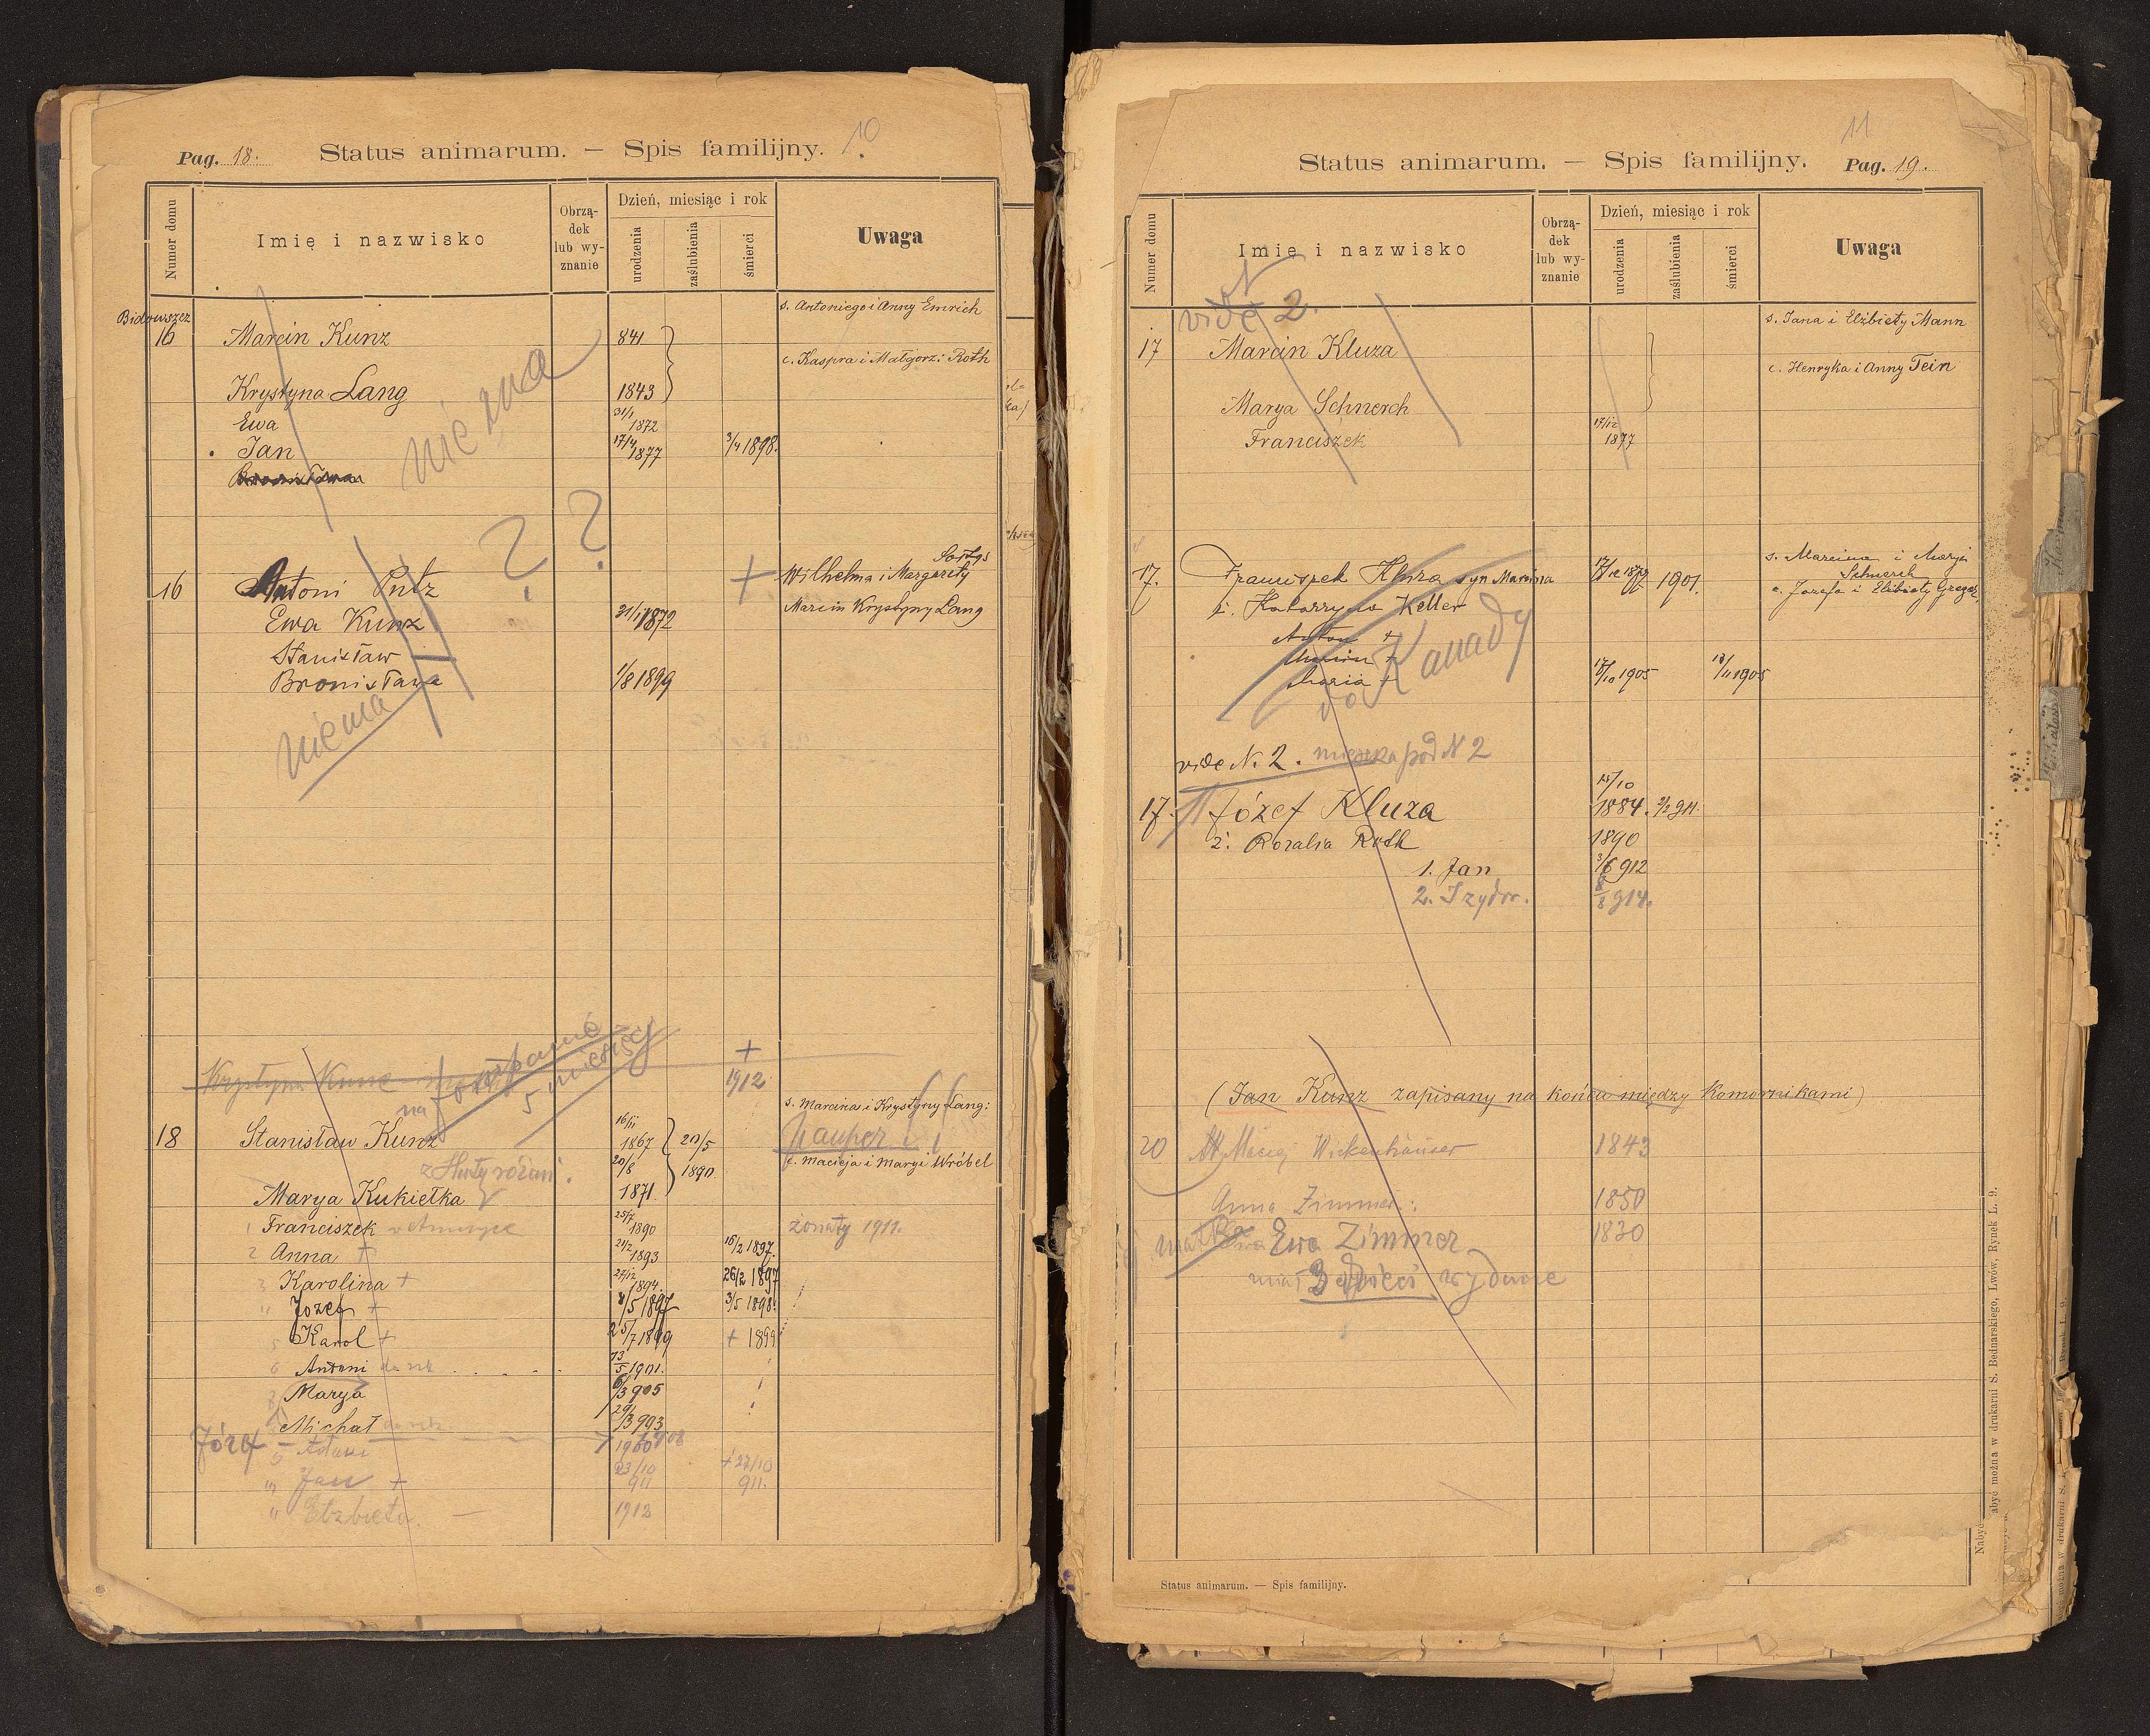 Pag. 18.
Status animarum. — Spis familijny.
10
Numer domu
Imię i nazwisko
Obrzą-
dek
lub wy-
znanie
Dzień, miesiąc i rok
urodzenia
zaślubienia
śmierci
Uwaga
s. Antoniego i Anny Emrich
16 Marcin Kunz 841
c. Kaspra i Małgorz: Roth
Krystyna Lang 1843
Ewa 31/1 1872
Jan 17/4 1877 3/4 1898.
niema
? ?
16 Antoni Putz + Wilhelma i Margarety
Ewa Kunz 31/1 1872 Marcin Krystyny Lang
Stanisław
Bronisława 1/8 1899
niema
+
Krystyna Kunz 1912
na
5 miesięcy
s. Marcina i Krystyny Lang:
18 Stanisław Kunz 16/11 1867 20/5 1890 pauper
z Huty różani. c. Macieja i Maryi Wróbel
Marya Kukiełka 20/8 1871.
1 Franciszek w Ameryce 25/7 1890 żonaty 1911.
2 Anna + 21/2 1893 16/2 1897.
3 Karolina + 27/12 1894. 26/2 1897
" Józef + 8/5 1897 3/5 1898.
5 Karol + 25/7 1899 + 1899
6 Antoni 13/5 1901.
Marya 6/3 905
Michał 29/3 903
Józef 1908
" Jan + 23/10 911 + 27/10 911.
" Elżbieta. — 1912
11
Status animarum. — Spis familijny.
Pag. 19.
Numer domu
Imię i nazwisko
Obrzą-
dek
lub wy-
znanie
Dzień, miesiąc i rok
urodzenia
zaślubienia
śmierci
Uwaga
vide 2.
s. Jana i Elżbiety Mann
17 Marcin Kluza
c. Henryka i Anny Tein
Marya Schnerch
Franciszek 17/12 1877
s. Marcina i Maryi
Schnerch
17. Franciszek Kluza syn Marcina 1901.
c. Józefa i Elżbiety
ż. Katarzyna Keller
Anton +
Marcin +
Maria + 17/10 1905 18/11 1905
do Kanady
vide N. 2. mieszka pod N 2
17. Józef Kluza 15/10 1884. 911.
ż. Rozalia Roth 1890
1. Jan 912
2. Izydor. 8/8 914.
(Jan Kunz zapisany na końcu między Komornikami)
20 Maciej Wickenhäuser 1843
Anna Zimmer: 1850
Ewa Zimmer 1830
3 dzieci
Status animarum. — Spis familijny.
abyć można w drukarni S. Bednarskiego, Lwów, Rynek L. 9.